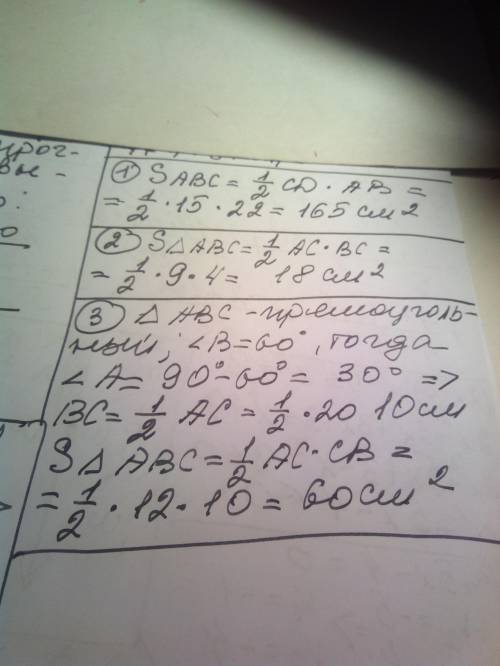 ① SABC = 1/2 CD · AB =
= 1/2 · 15 · 22 = 165 см²
② S△ABC = 1/2 AC · BC =
= 1/2 · 9 · 4 = 18 см²
③ △ ABC - прямоуголь-
ный, ∠B = 60°, тогда
∠A = 90° - 60° = 30° =>
BC = 1/2 AC = 1/2 · 20 10 см
S△ABC = 1/2 AC · CB =
= 1/2 · 12 · 10 = 60 см²